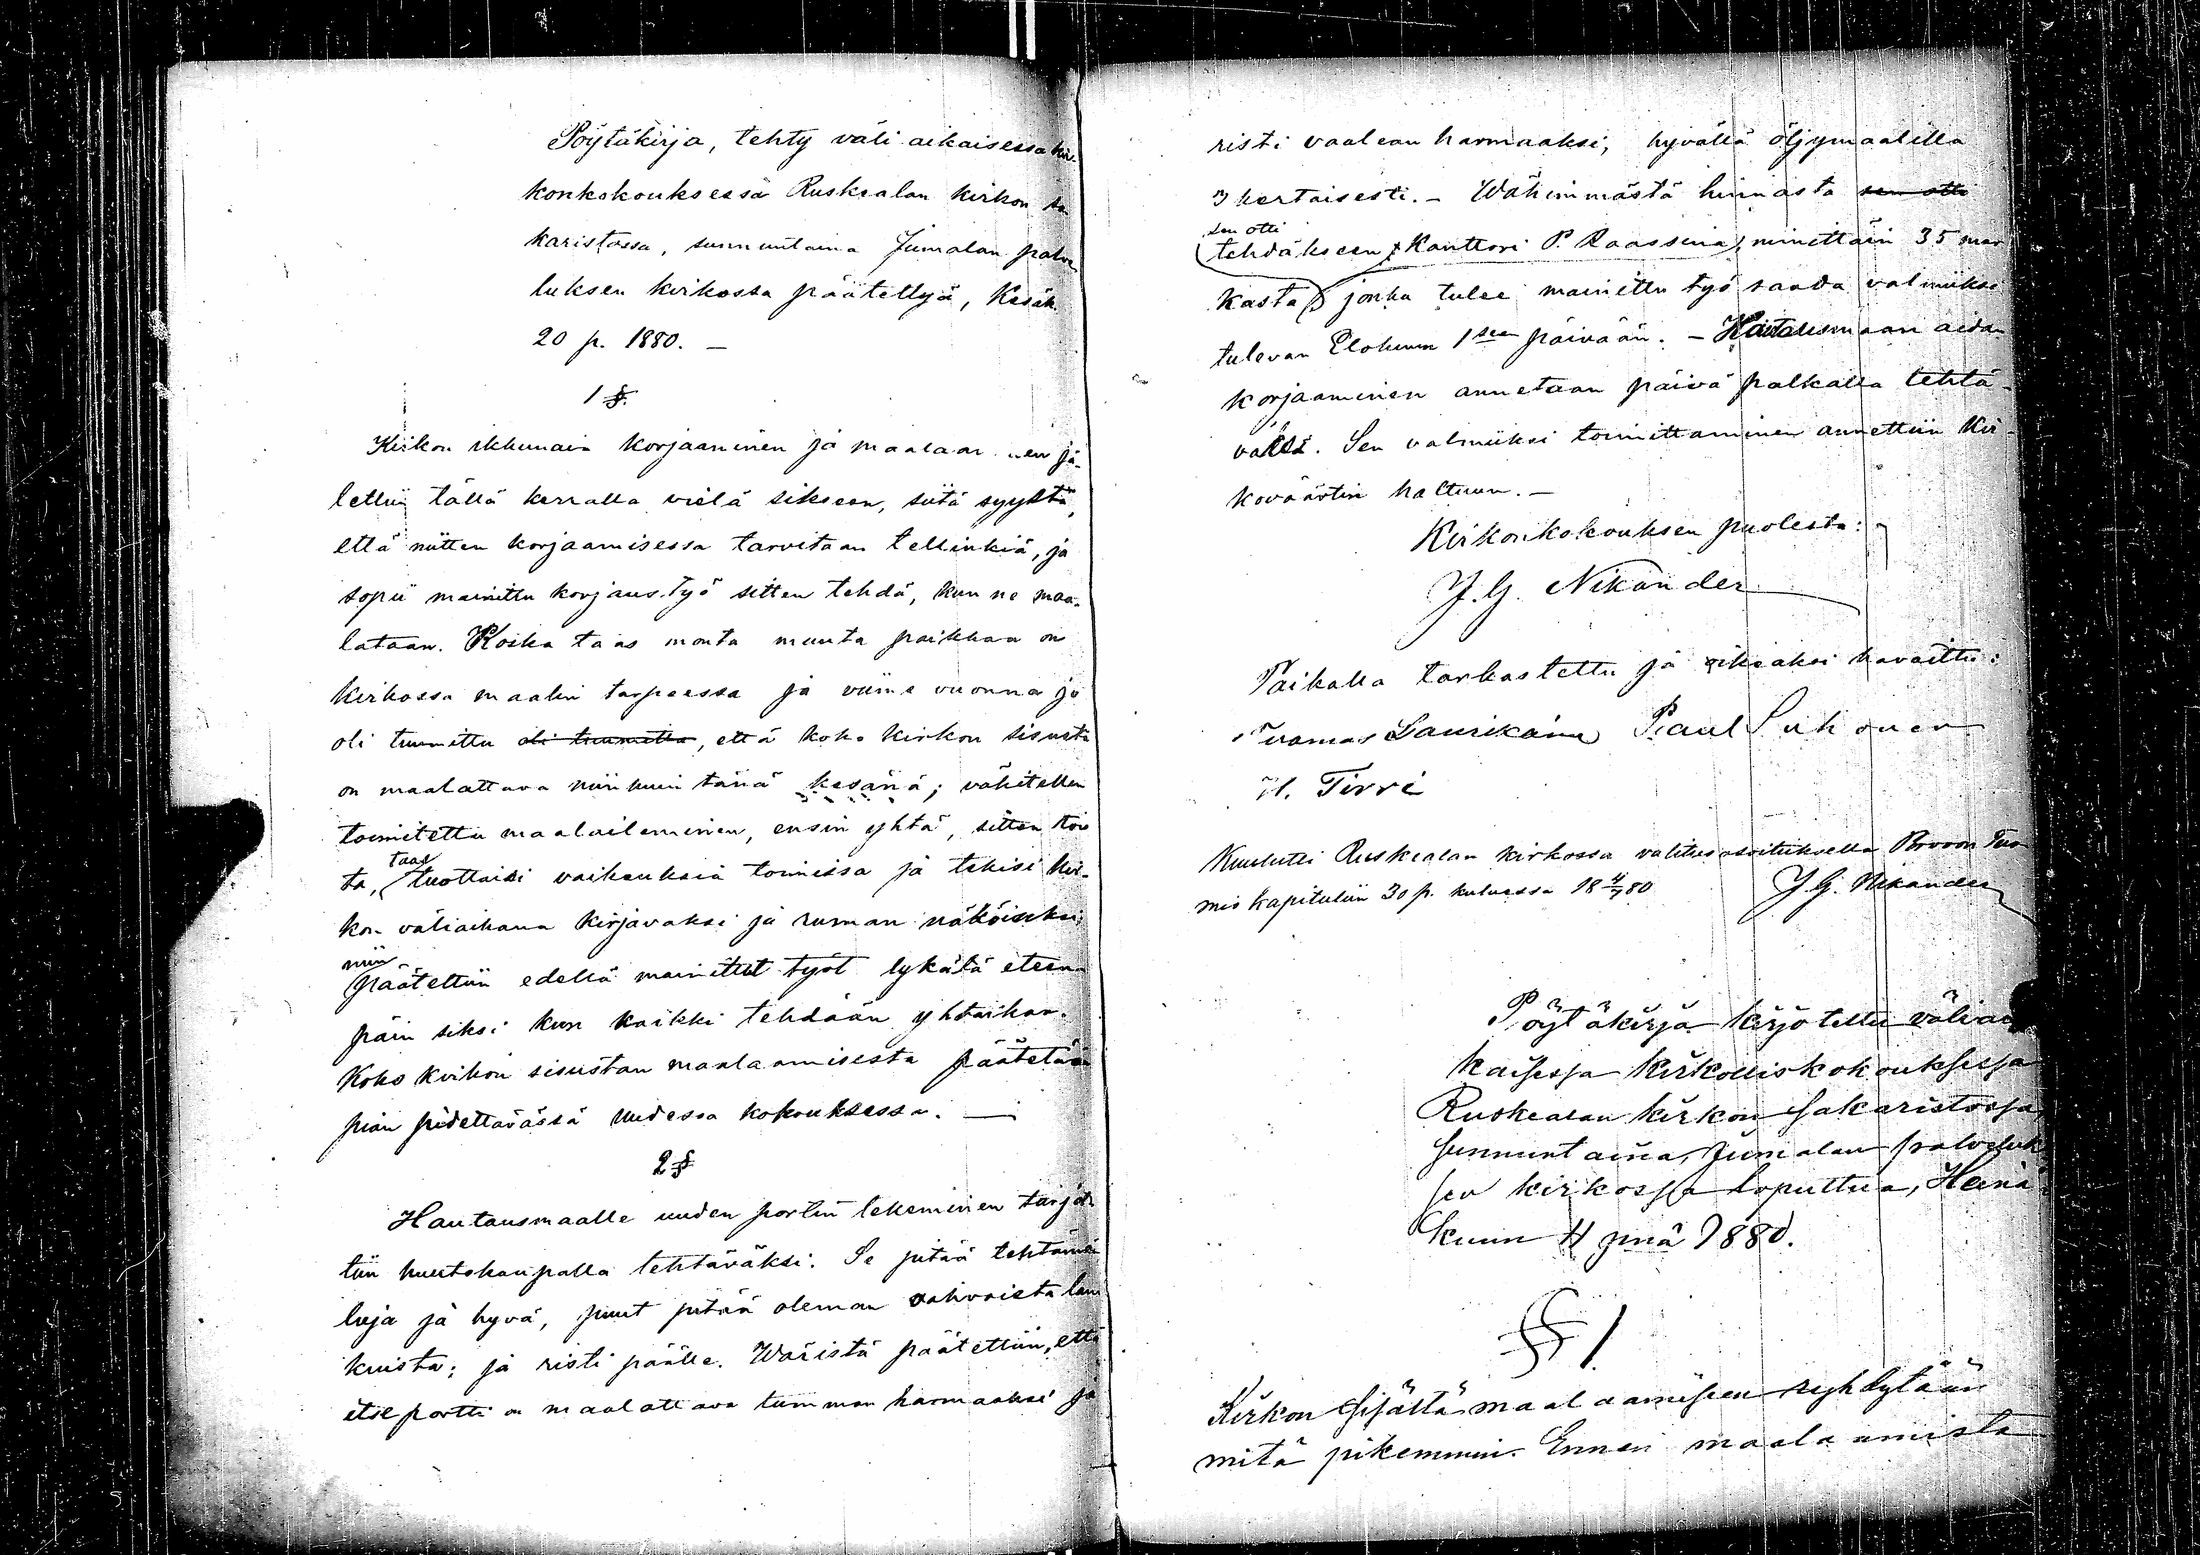 Pöytäkirja, tehty väli aikaisessa kir-
konkokouksessa Ruskealan kirkon sa-
karistossa, sunnuntaina Jumalan palve
luksen kirkossa päätettyä, Kesäk.
20 p. 1880. —
1 §.
Kirkon ikkunain korjaaminen ja maalaaminen jä-
tettiin tällä kerralla vielä sikseen, siitä syystä,
että niitten korjaamisessa tarvitaan tellinkiä, ja
sopii mainittu korjaus työ sitten tehdä, kun ne maa-
lataan. Koska taas monta muuta paikkaa on
kirkossa maalin tarpeessa ja viime vuonna jo
oli tuumittu oli tuumittu, että koko kirkon sisusta
on maalattava niinkuin tänä kesänä; vähitellen
toimitettu maalaileminen, ensin yhtä, sitten tois
ta, taas tuottaisi vaikeuksia toimissa ja tekisi kir-
kon väliaikana kirjavaksi ja ruman näköiseksi;
niin päätettiin edellä mainitut työt lykätä eteen-
päin siksi kun kaikki tehdään yhtaikaa.
Koko kirkon sisustan maalaamisesta päätetään
pian pidettävässä uudessa kokouksessa. —
2 §
Hautausmaalle uuden portin tekeminen tarjot-
tiin huutokaupalla tehtäväksi. Se pitää tehtämän
luja ja hyvä, puut pitää oleman vahvoista lan
kuista; ja risti päälle. Wäristä päätettiin, että
itse portti on maalattava tumman harmaaksi ja
risti vaalean harmaaksi, hyvällä öljymaalilla
3 kertaisesti. — Wähimmästä hinnasta sen otti
sen otti
tehdäkseen Kanttori P. Raassina, nimittäin 35 mar
kasta jonka tulee mainittu työ saada valmiiksi
tulevan Elokuun 1 seen päivään. — Hautausmaan aidan
korjaaminen annetaan päivä palkalla tehtä-
väksi. Sen valmiiksi toimittaminen annettiin Kir-
koväärtin haltuun. —
Kirkonkokouksen puolesta:
J. G. Nikander
Paikalla tarkastettu ja oikiaksi havaittu:
Tuomas Laurikaine Paul Suhonen
H. Tirri
Kuulutti Ruskealan kirkossa valitusosoituksella Porvoon Tuo
mio kapituliin 30 p. kuluessa 18 4/7 80 J. G. Nikander
Pöytäkirja kirjotettu väliai
kaisessa kirkolliskokouksessa
Ruskealan kirkon sakaristossa,
sunnuntaina, Jumalan palveluk
sen kirkossa loputtua, Heinä-
kuun 4 pnä 1880.
§ 1.
Kirkon sisältä maalaamiseen ryhdytään
mitä pikemmin. Ennen maalaamista